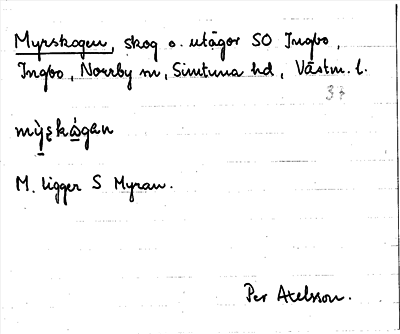 Myrskogen, skog o. utägor SO Ingbo,
Ingbo, Norrby sn, Simtuna hd, Västm. l.
37
M. ligger S Myran.
Per Axelsson.